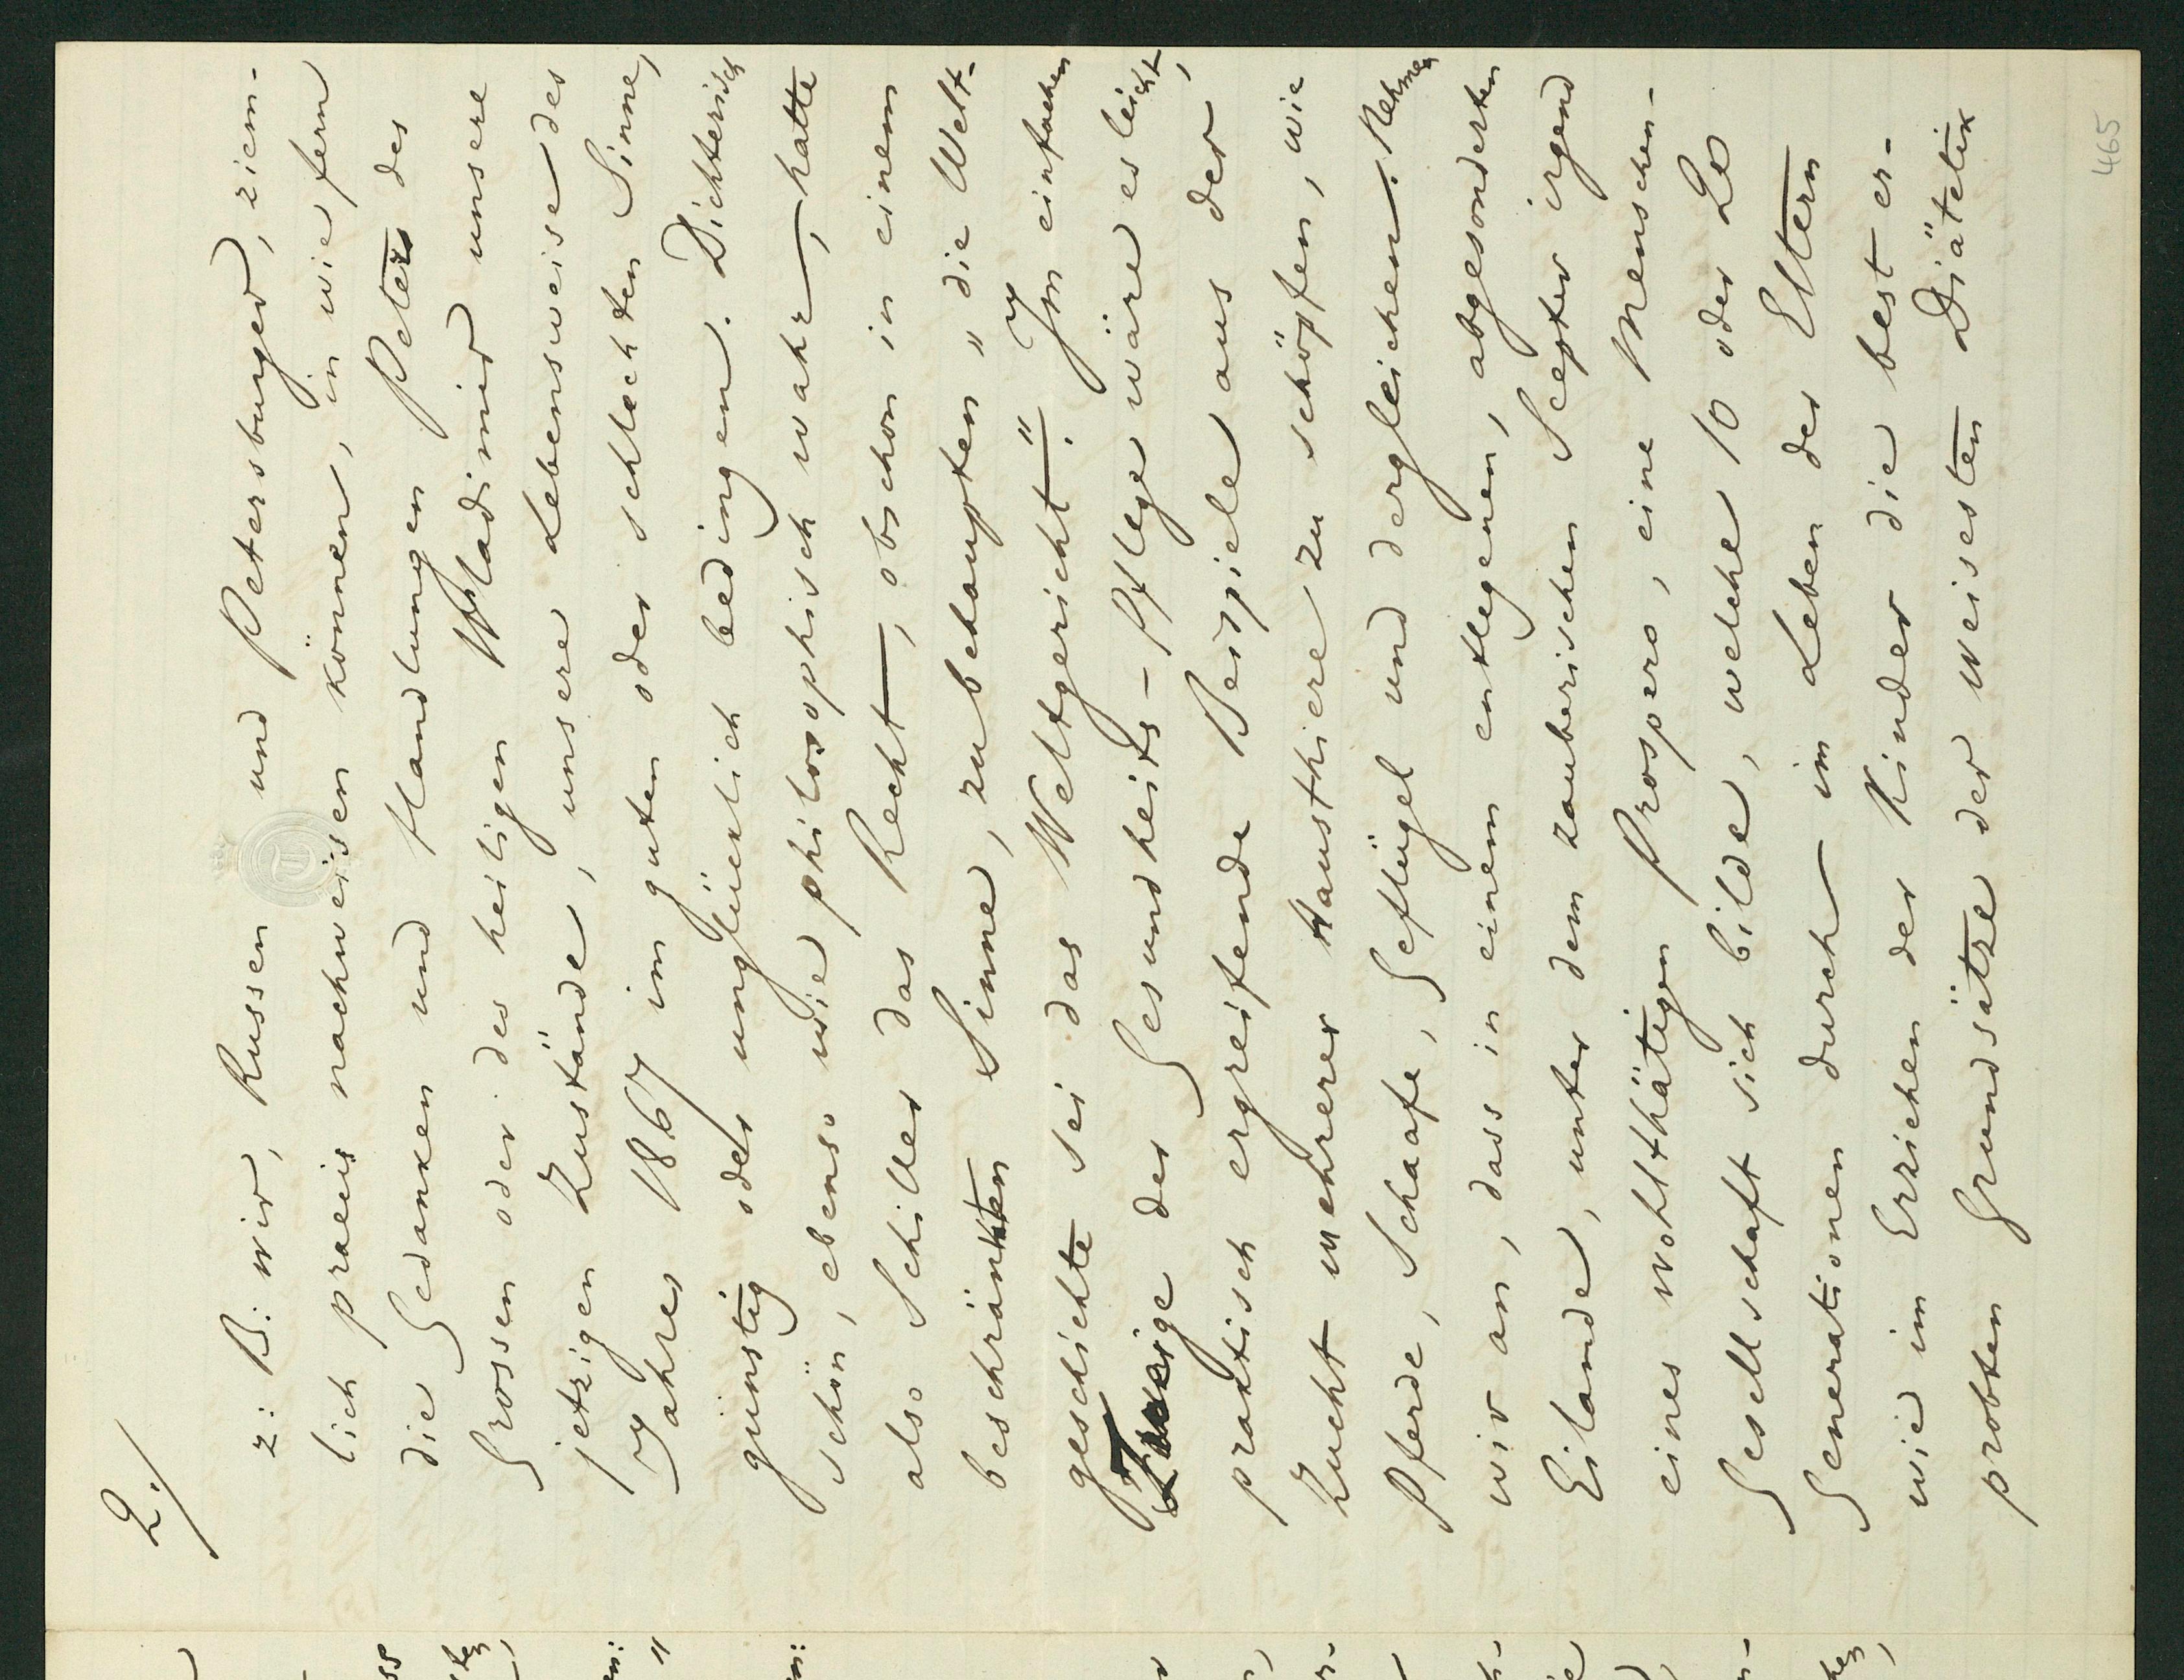 2./
z: B: wir, Russen und Petersburger, ziem-
lich praecis nachweisen können, in wie fern
die Gedanken und Handlungen Peters des
Grossen oder des heiligen Wladimir unsere
jetzigen Zustände, unsere Lebensweise des
Jahres 1867 im guten oder schlechten Sinne,
günstig oder unglücklich bedingen. Dichterisch
schön, ebenso wie philosophisch wahr, hatte
also Schiller das Recht, obschon in einem
beschränkten Sinne, zu behaupten „die Welt-
geschichte sei das Weltgericht". Im einfachen
der Gesundheits-Pflege wäre es leicht,
practisch ergreifende Beispiele aus der,
Zucht mehrerer Hausthiere zu schöpfen, wie
Pferde, Schaafe, Geflügel und dergleichen. Nehmen
wir an, dass in einem entlegenen, abgesonderten
Eilande, unter dem zauberischen Scepter irgend
eines wohlthätigen Prospero, eine Menschen-
Gesellschaft sich bilde, welche 10 oder 20
Generationen durch im Leben der Eltern
wie im Erziehen der Kinder die best er-
probten Grundsätze der weisesten Diätetik
465